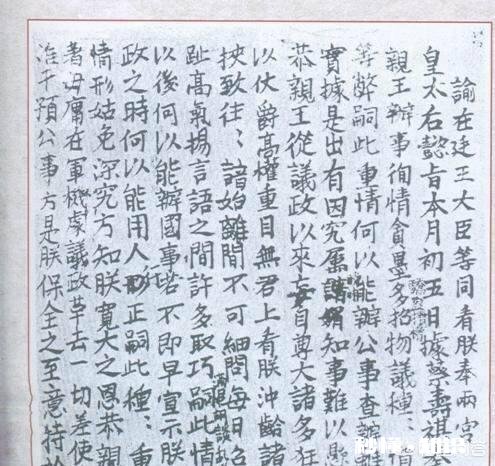 諭在廷王大臣等同看朕奉兩宮
皇太后懿旨本月初五日據蔡壽祺
親王辦事徇情貪墨多招物議種:
等弊嗣此重情何以能辦公事查辦
實據是出有因究屬知事難以懸
恭親王從議政以來妄自尊大諸多狂
以仗爵高權重目無君上看朕沖齡諸
挾致往:諳始離間不可細問每日召
趾高氣揚言語之間許多取巧嗣此情
以後何以能辦國事若不即早宣示朕
政之時何以能用人行正嗣此種:重
情形姑免深究方知朕寬大之恩恭親
著毋庸在軍機處議政革去一切差使
准干預公事方是朕保全之至意特諭